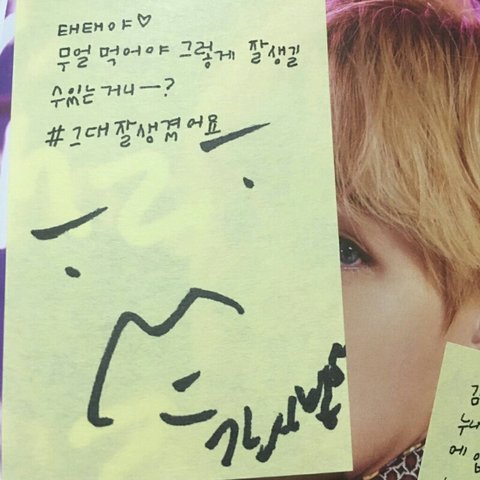 태태야♡
무얼 먹어야 그렇게 잘생길
수있는 거니ㅡ?
#그대잘생겼어요
감사밤
김
누나
에